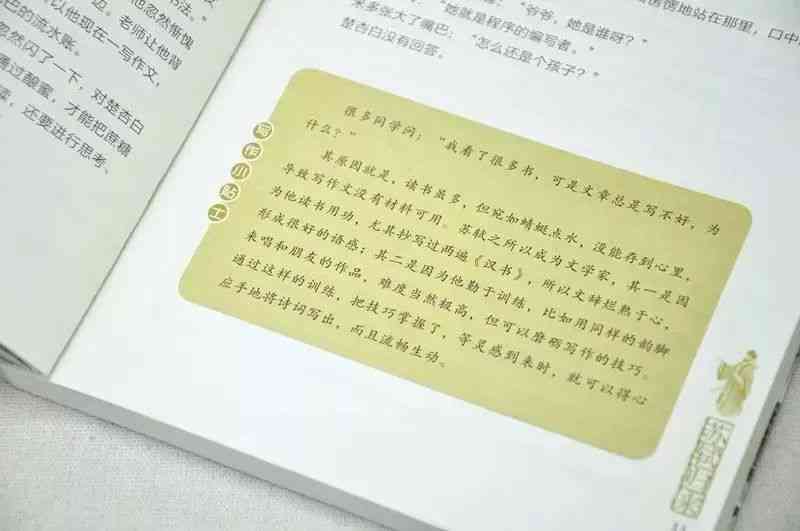 书法。”
他忽然惭愧
巴的流水账。
老师让他背
以他现在一写作文，
忽然闪了一下，对楚杏白
通过酿蜜，才能把蔗糖
还要进行思考、
地站在那里，口中
“爷爷，她是谁呀？”
“她就是程序的编写者。”
来多张大了嘴巴：“怎么还是个孩子？”
楚杏白没有回答。
写作小贴士
很多同学问：“我看了很多书，可是文章总是写不好，为
什么？”
其原因就是，读书虽多，但宛如蜻蜓点水，没能存到心里，
导致写作文没有材料可用。苏轼之所以成为文学家，其一是因
为他读书用功，尤其抄写过两遍《汉书》，所以文辞烂熟于心，
形成很好的语感；其二是因为他勤于训练，比如用同样的韵脚
来唱和朋友的作品，难度当然极高，但可以磨砺写作的技巧。
通过这样的训练，把技巧掌握了，等灵感到来时，就可以得心
应手地将诗词写出，而且流畅生动。